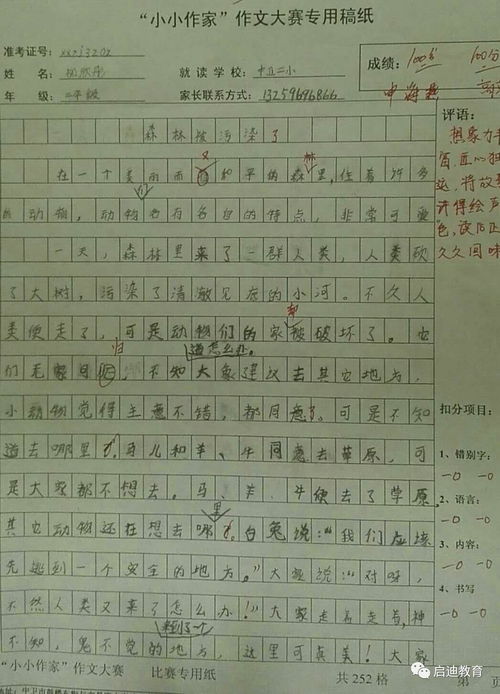 “小小作家”作文大赛专用稿纸
准考证号：
姓 名：
就 读 学 校：中卫二小
年 级：二年级
家长联系方式：13259696866
成绩：100分 100分
评语：
想象力丰
富，匠心独
运，将故事
讲得绘声
色，读后正
久久回味
森林被污染了
在一个美丽而又和平的森林里，住着许多
的动物，动物们也有各自的特点，非常可爱
一天，森林里来了一群人类，人类砍
了大树，污染了清澈见底的小河。不久人
类便走了，可是动物们的家却被破坏了。它
们无家可归，不知道怎么办。大象建议去其它地方，
小动物觉得主意不错，都同意了。可是不知
道去哪里。马儿和羊、牛同意去草原，可
是大家都不想去。马、羊、牛便去了草原，
其它动物还在想去哪里。白兔说：“我们应该
先逃到一个安全的地方。”大象说：“对呀，
不然人类又来了怎么办！”大家走着走着，神
不知，鬼不觉的来到了一个地方，这里可真美！大家
扣分项目：
1、错别字：
—0 —0
2、语言：
—0 —0
3、内容：
—0 —0
4、书写
—0 —0
“小小作家”作文大赛 比赛专用纸 共 252 格 第
启迪教育